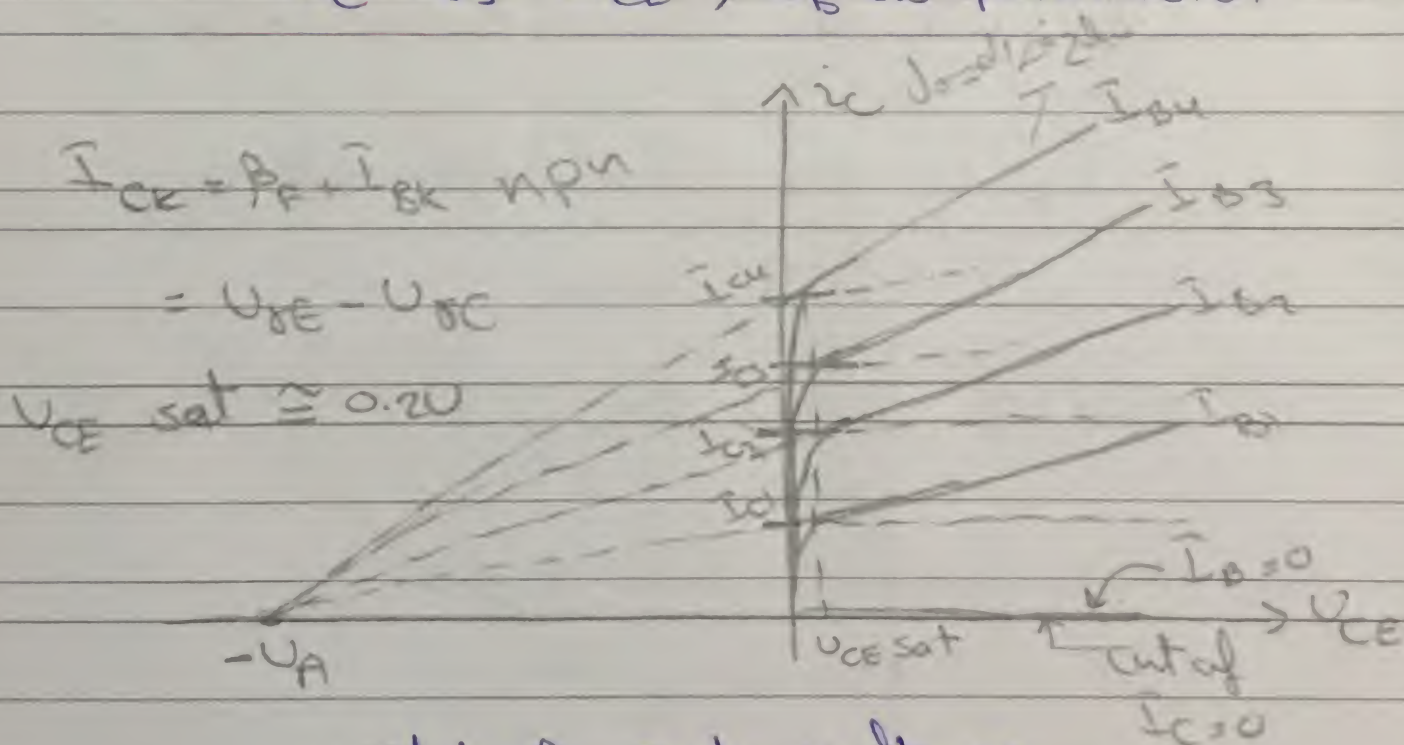 I_CK = β_F . I_BK npn
= V_BE - V_BC
V_CE sat ≅ 0.2V
i_C
I_B4
I_B3
I_B2
I_B1
I_C4
I_C3
I_C2
I_C1
I_B = 0
V_CE
-V_A
V_CE sat
cut of
I_C = 0